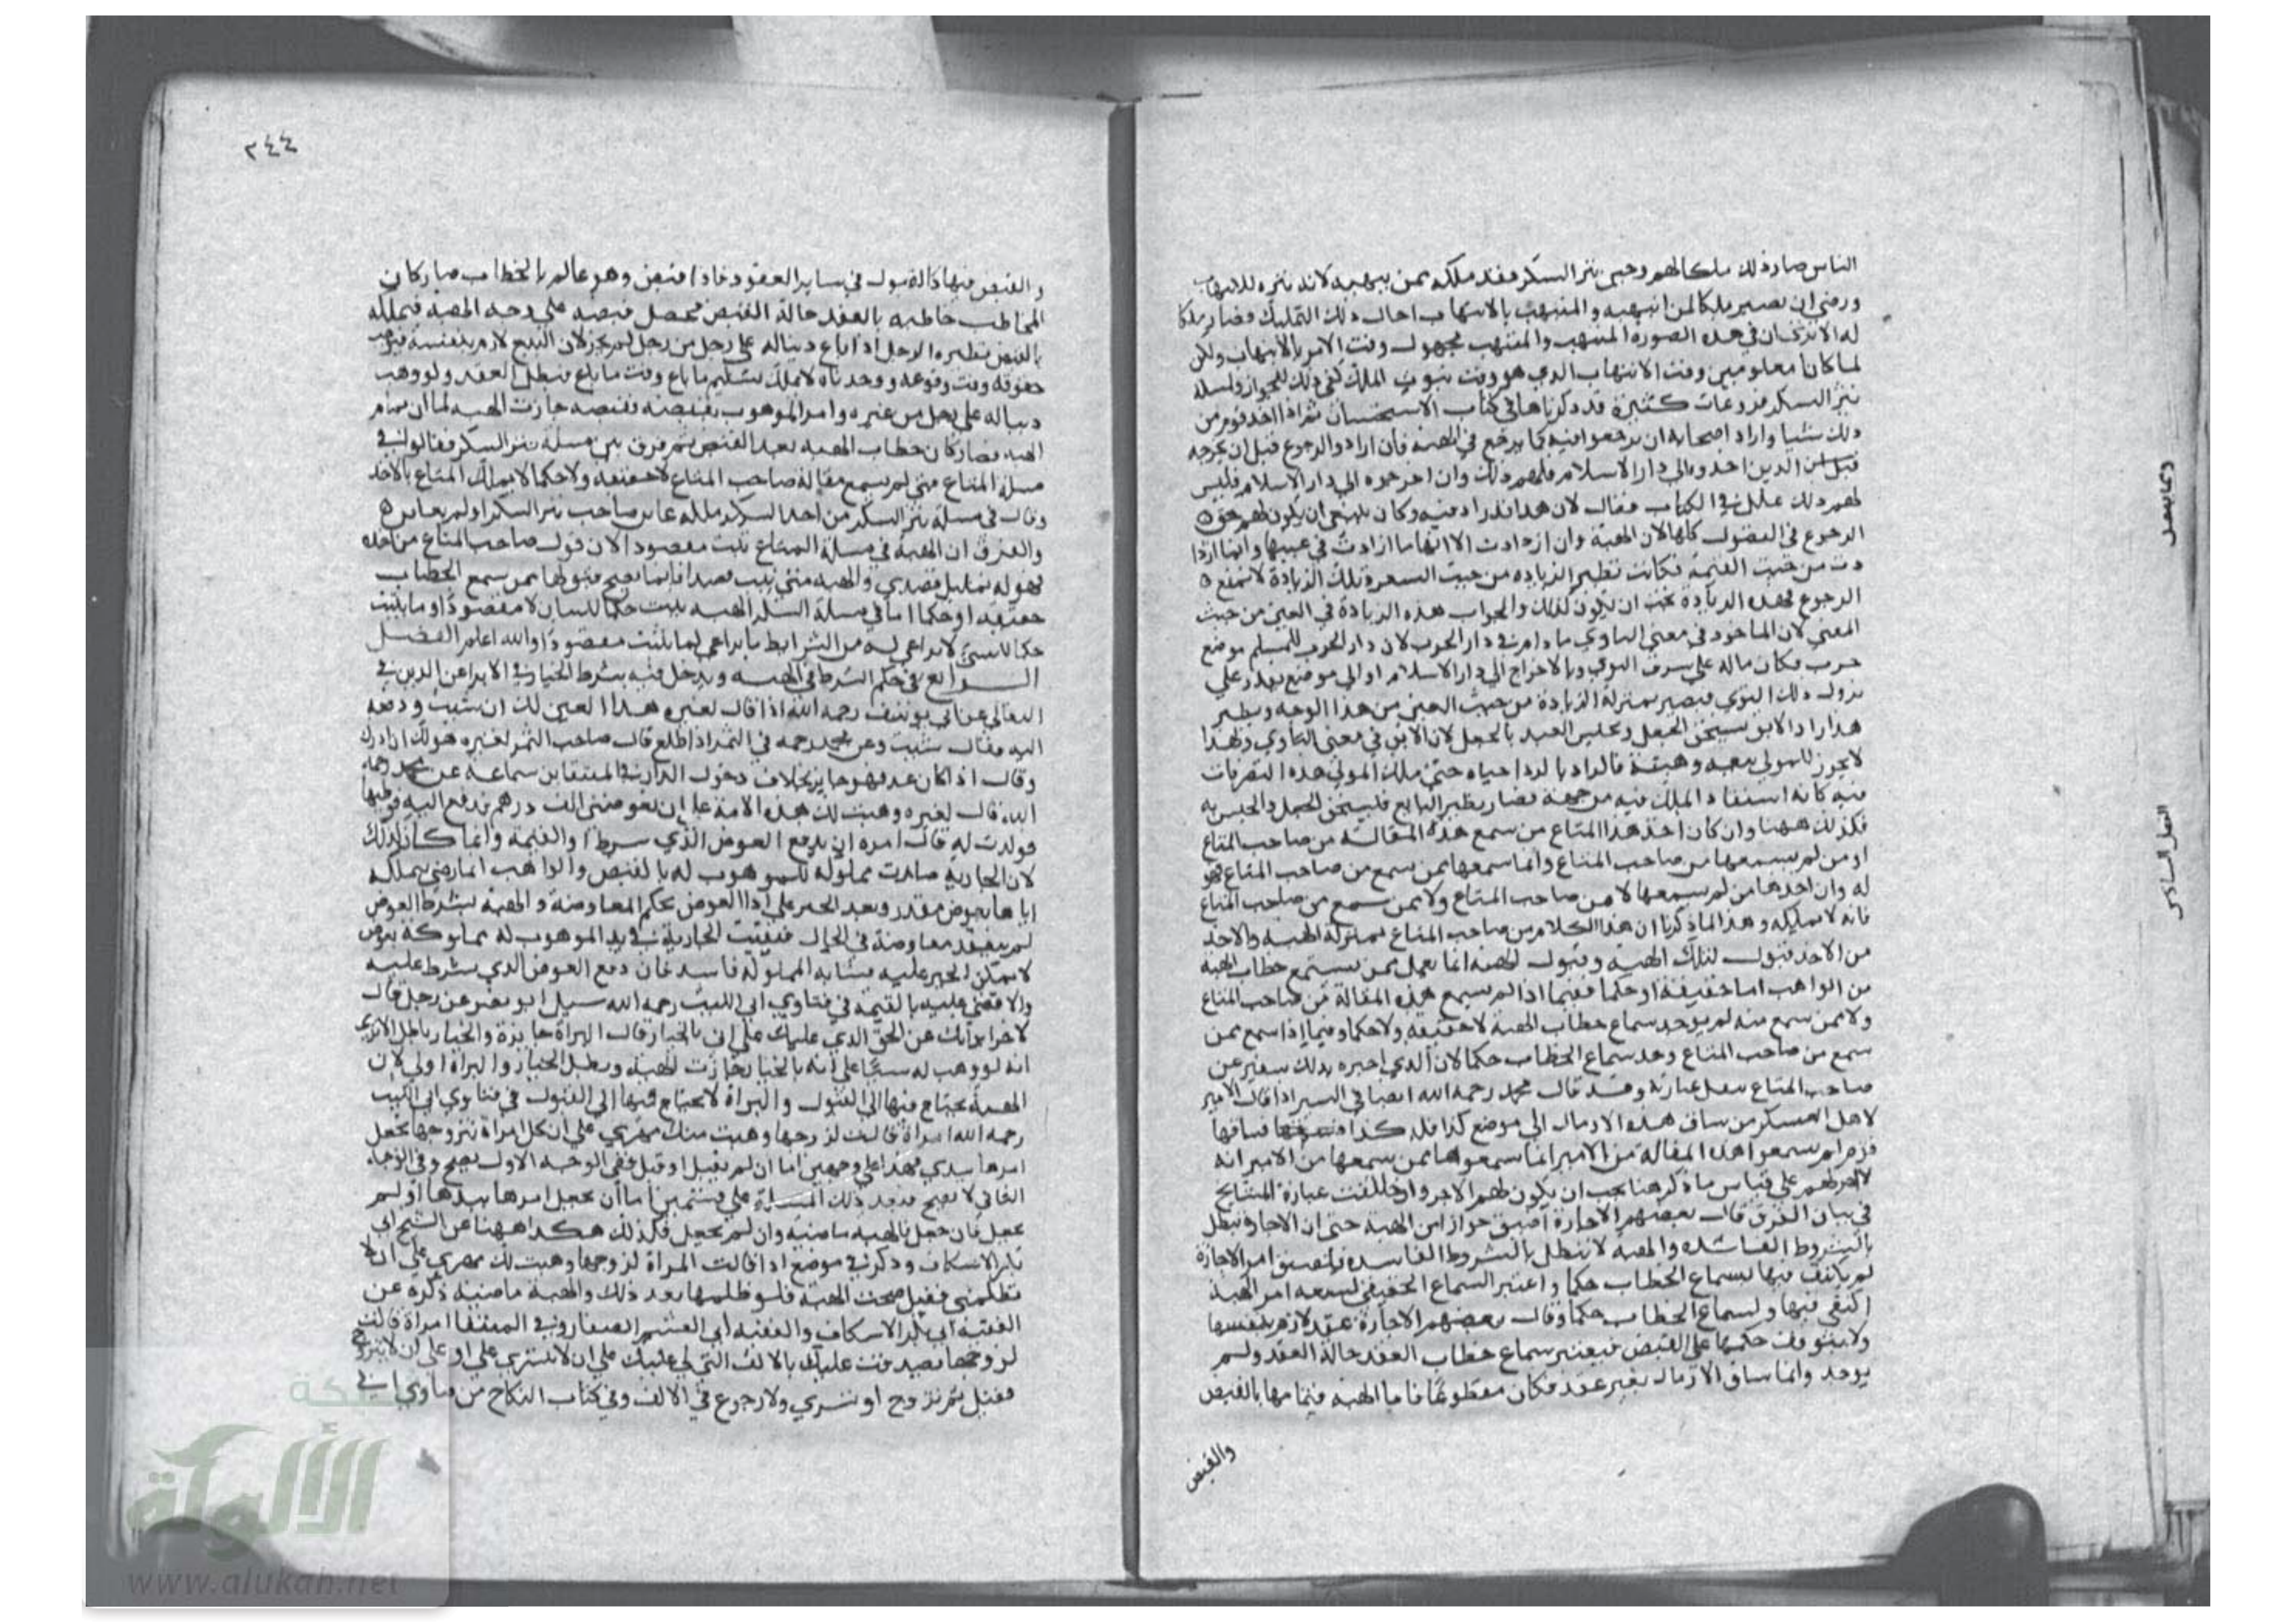 الناس صار ذلك ملكا لهم وحين نثر السكر فقد ملكه ممن ينهبه لانه نثره للانتهاب
ورضي ان يصير ملكا لمن انتهبه والمنتهب بالانتهاب احال ذلك التمليك فصار ملكا
له الا ترى ان في هذه الصورة المنتهب والمنتهب مجهول وقت الامر بالانتهاب ولكن
لما كانا معلومين وقت الانتهاب الذي هو وقت ثبوت الملك كفى ذلك للجواز ولمسلة
نثر السكر فروعات كثيرة قد ذكرناها في كتاب الاستحسان ثم اذا اخذ قوم من
ذلك شيا واراد اصحابه ان يرجعوا فيه كما يرجع في الهبة فان ارادوا الرجوع قبل ان يخرجه
الذين اخذوه الى دار الاسلام فلهم ذلك وان اخرجوه الى دار الاسلام فليس
لهم ذلك علل في الكتاب فقال لان هذا قد زاد فيه وكان ينبغي ان يكون لهم حق
الرجوع في الفصول كلها لان الهبة وان ازدادت الا انها ما ازدادت في عينها وانما ازدا
دت من حيث القيمة فكانت نظير الزيادة من حيث السعر وتلك الزيادة لا تمنع
الرجوع فهذه الزيادة يجب ان يكون كذلك والجواب هذه الزيادة في العين من حيث
المعنى لان الماخوذ في معنى التاوي ما دام في دار الحرب لان دار الحرب للمسلم موضع
حرب فكان ماله على شرف التوى وبالاخراج الى دار الاسلام او الى موضع يقدر على
يزول ذلك التوى فيصير بمنزلة الزيادة من حيث العين من هذا الوجه ونظير
هذا راد الابق يستحق الجعل ويحبس العبد بالجعل لان الابق في معنى التاوي ولهذا
لا يجوز للمولى بيعه وهبته فالراد بالرد احياه حتى ملك المولى هذه التصرفات
فيه كانه استفاد الملك فيه من جهة فصار نظير البايع فيستحق الجعل والحبس به
فكذلك ههنا وان كان اخذ هذا المتاع من سمع هذه المقالة من صاحب المتاع
او من لم يسمعها من صاحب المتاع وانما سمعها ممن سمع من صاحب المتاع فهو
له وان اخذها من لم يسمعها لا من صاحب المتاع ولا ممن سمع من صاحب المتاع
فانه لا يملكه وهذا لما ذكرنا ان هذا الكلام من صاحب المتاع بمنزلة الهبة والاخذ
من الاخذ قبول لتلك الهبة وقبول الهبة انما يعمل ممن يستمع خطاب الهبة
من الواهب اما حقيقة او حكما ففيما اذا لم يسمع هذه المقالة من صاحب المتاع
ولا ممن سمع منه لم يوجد سماع خطاب الهبة لا حقيقة ولا حكما وفيما اذا سمع ممن
سمع من صاحب المتاع وجد سماع الخطاب حكما لان الذي اخبره بذلك سفير عن
صاحب المتاع ينقل عبارته وقد قال محمد رحمه الله ايضا في السير اذا قال الامير
لاهل العسكر من ساق هذه الارماك الى موضع كذا فله كذا فساقها
قوم لم يسمعوا هذه المقالة من الامير انما سمعوها ممن سمعها من الامير انه
لا اجر لهم على قياس ما ذكر هنا يجب ان يكون لهم الاجر واختلفت عبارة المشايخ
في بيان الفرق قال بعضهم الاجارة اضيق جوازا من الهبة حتى ان الاجارة تبطل
بالشروط الفاسدة والهبة لا تبطل بالشروط الفاسدة فلضيق امر الاجارة
لم يكتف فيها بسماع الخطاب حكما واعتبر السماع الحقيقي لسعة امر الهبة
اكتفى فيها بسماع الخطاب حكما وقال بعضهم الاجارة عقد لازم بنفسها
ولا يتوقف حكمها على القبض فيعتبر سماع خطاب العقد حالة العقد ولم
يوجد وانما ساق الارماك بغير عقد فكان متطوعا فاما الهبة فتمامها بالقبض
والقبض
الفصل السادس
٢٤٤
والقبض فيها كالقبول في ساير العقود فاذا قبض وهو عالم بالخطاب صار كان
المخاطب خاطبه بالعقد حالة القبض فحصل قبضه على وجه الهبة فيملكه
بالقبض نظيره الرجل اذا باع دينا له على رجل من رجل لم يجز لان البيع لازم بنفسه فيوجب
حقوقه وقت وقوعه ووجدناه لا يملك تسليم ما باع وقت ما باع فبطل العقد ولو وهب
دينا له على رجل من غيره وامر الموهوب بقبضه فقبضه جازت الهبة لما ان تمام
الهبة فصار كان خطاب الهبة بعد القبض ثم فرق بين مسلة نثر السكر فقالوا في
مسلة المتاع متى لم يسمع مقالة صاحب المتاع لا حقيقة ولا حكما لا يملك المتاع بالاخذ
وقال في مسلة نثر السكر من اخذ السكر ملكه عاين صاحب نثر السكر او لم يعاين
والفرق ان الهبة في مسلة المتاع ثبت مقصودا لان قول صاحب المتاع من اخذه
فهو له تمليك قصدي والهبة متى ثبت قصدا فانما يصح قبولها ممن سمع الخطاب
حقيقة او حكما اما في مسلة السكر الهبة ثبت حكما للنثار لا مقصودا وما يثبت
حكما للشيء لا يراعى له من الشرايط ما يراعى لما يثبت مقصودا والله اعلم الفصل
الرابع في حكم الشرط في الهبة ويدخل فيه شرط الخيار في الابرا عن الدين في
البقالي عن ابي يوسف رحمه الله اذا قال لغيره هذا العين لك ان شيت ودفعه
اليه فقال شيت وعن محمد رحمه في الثمر اذا اطلع قال صاحب الثمر لغيره هو لك ان ادرك
وقال اذا كان غد فهو جايز بخلاف دخول الدار في المنتقا ابن سماعه عن محمد رحمه
الله قال لغيره وهبت لك هذه الامة على ان تعوضني الف درهم فدفع اليه فوطيها
فولدت له قال امره ان يدفع العوض الذي شرط او القيمة وانما كان كذلك
لان الجارية صارت مملوكة للموهوب له بالقبض والواهب انما رضي بملكه
اياها بعوض مقدر وتعذر الجبر على اداا العوض بحكم المعاوضة والهبة بشرط العوض
لم ينعقد معاوضة في الحال فبقيت الجارية في يد الموهوب له مملوكة بعوض
لا يمكن الجبر عليه فشابه المملوكة فاسد فان دفع العوض الذي شرط عليه
والا قضي عليه بالقيمة في فتاوي ابي الليث رحمه الله سيل ابو نصر عن رجل قال
لاخر ابراتك عن الحق الذي عليك على اني بالخيار قال البراة جايزة والخيار باطل الا ترى
انه لو وهب له شيئا على انه بالخيار جازت الهبة وبطل الخيار والبراة اولى لان
الهبة يحتاج فيها الى القبول والبراة لا يحتاج فيها الى القبول في فتاوي ابي الليث
رحمه الله امراة قالت لزوجها وهبت منك مهري على ان كل امراة تتزوجها تجعل
امرها بيدي فهذا على وجهين اما ان لم يقبل او قبل ففي الوجه الاول يصح وفي الوجه
الثاني لا يصح فبعد ذلك المسلة على قسمين اما ان يجعل امرها بيدها او لم
يجعل فان جعل فالهبة ماضية وان لم يجعل فكذلك هكذا ههنا عن الشيخ ابي
بكر الاسكاف وذكر في موضع اذا قالت المراة لزوجها وهبت لك مهري على ان لا
تظلمني فقبل صحت الهبة فلو ظلمها بعد ذلك والهبة ماضية ذكره عن
الفقيه ابي بكر الاسكاف والفقيه ابي القسم الصفار وفي المنتقا امراة قالت
لزوجها تصدقت عليك بالالف التي لي عليك على ان لا تتسرى علي او على ان لا تتزوج
فقبل ثم تزوج او تسرى ولا رجوع في الالف وفي كتاب النكاح من فتاوي ابي
شبكة
الألوكة
www.alukah.net